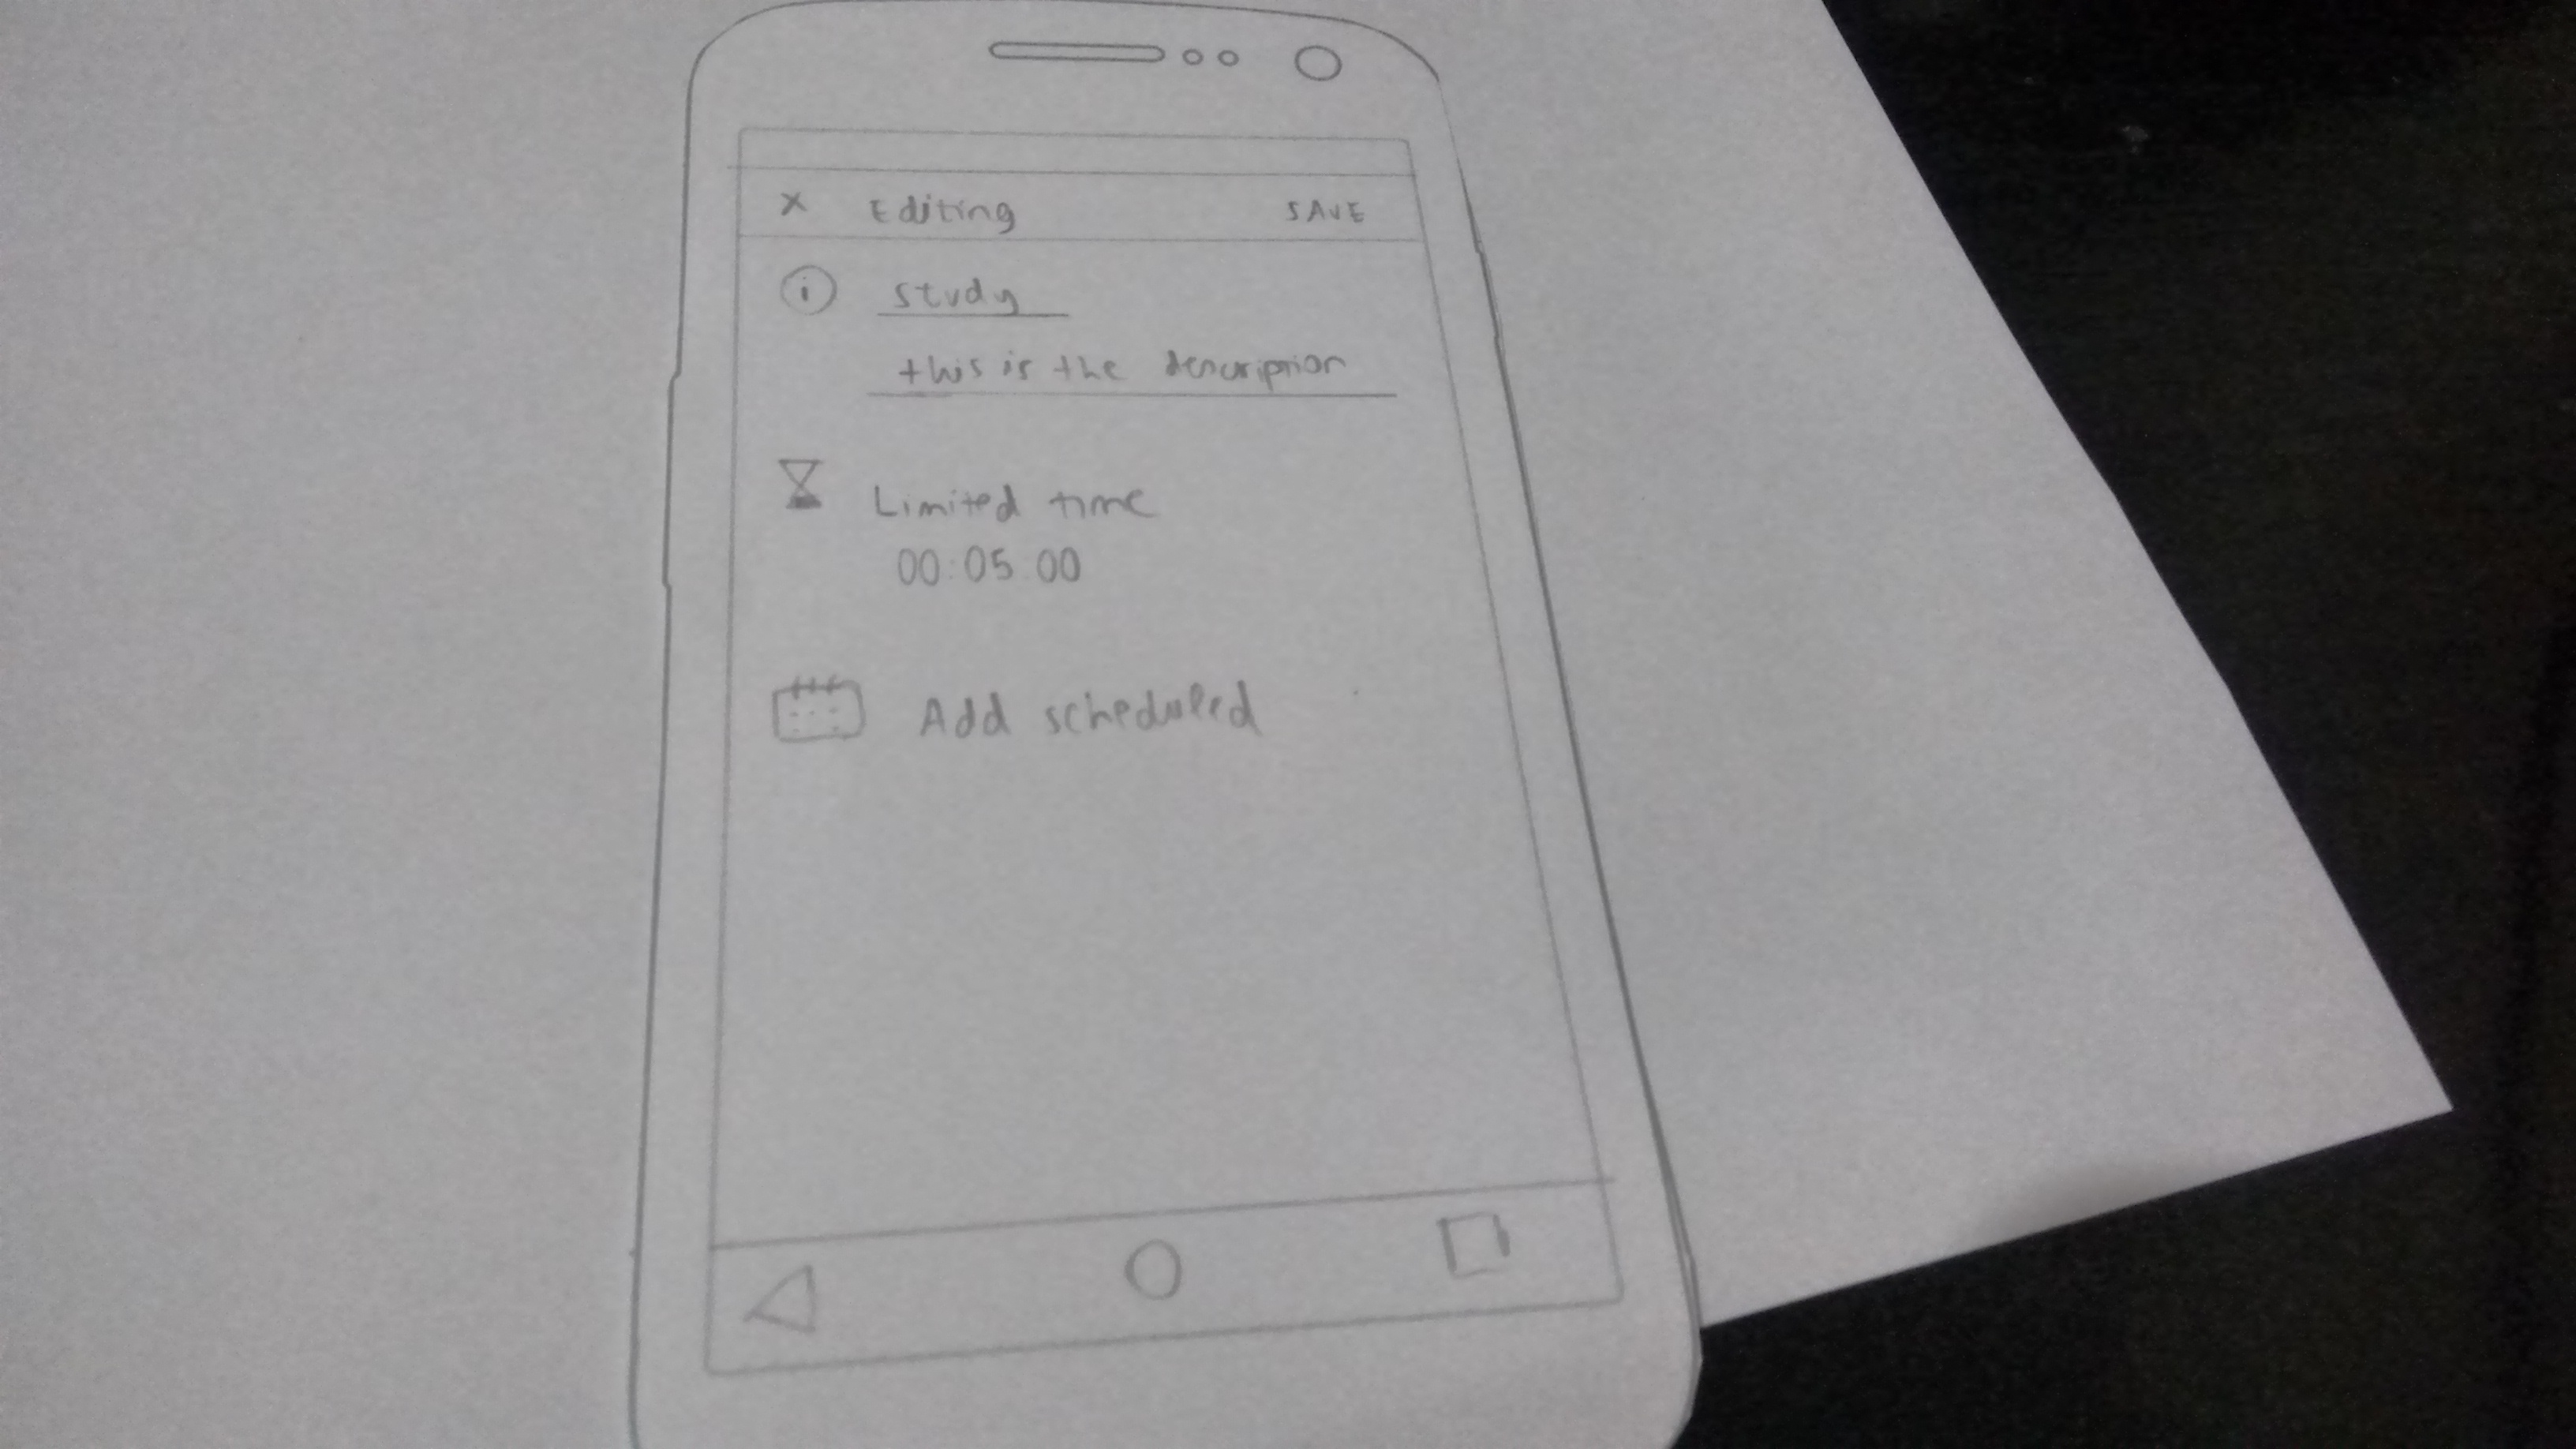 X Editing SAVE
i study
this is the description
Limited time
00:05:00
Add scheduled